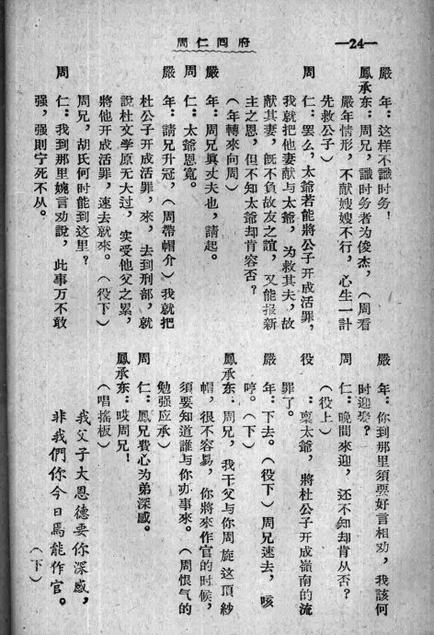 周仁囘府
—24—
嚴　年：这样不識时务！
鳳承东：周兄，識时务者为俊杰，（周看
嚴年情形，不献嫂嫂不行，心生一計
先救公子）
周　仁：罢么，太爷若能將公子开成活罪，
我就把他妻献与太爷，为救其夫，故
献其妻，旣不負故友之誼，又能报新
主之恩，但不知太爷却肯容否？
（年轉來向周）
嚴　年：周兄眞丈夫也，請起。
周　仁：太爷恩寬。
嚴　年：請兄升冠，（周带帽介）我就把
杜公子开成活罪，來，去到刑部，就
說杜文学原无大过，实受他父之累，
將他开成活罪，速去就來。（役下）
周兄，胡氏何时能到这里？
周　仁：我到那里婉言劝說，此事万不敢
强，强則宁死不从。
嚴　年：你到那里須要好言相劝，我該何
时迎娶？
周　仁：晚間來迎，还不知却肯从否？
（役上）
役　：稟太爷，將杜公子开成嶺南的流
罪了。
嚴　年：下去。（役下）周兄速去，咳
哼。（下）
鳳承东：周兄，我干父与你周旋这頂紗
帽，很不容易，你將來作官的时候，
須要知道誰与你办事來。（周恨气的
勉强应承）
周　仁：鳳兄費心为弟深感。
鳳承东：哎周兄！
（唱搖板）
我父子大恩德要你深感，
非我們你今日焉能作官。
（下）